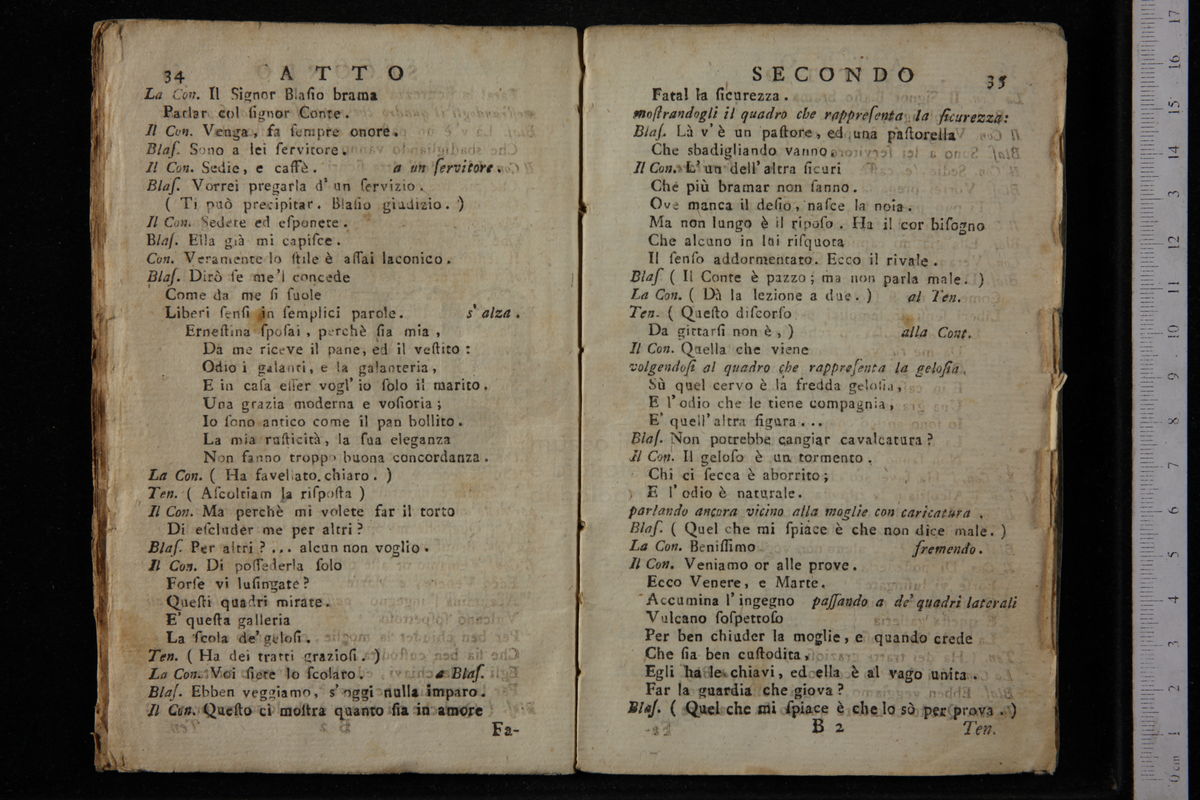 34 ATTO
La Con. Il Signor Blaſio brama
Parlar col ſignor Conte.
Il Con. Venga, fa ſempre onore.
Blaſ. Sono a lei ſervitore.
Il Con. Sedie, e caffè. a un ſervitore.
Blaſ. Vorrei pregarla d'un ſervizio.
( Ti può precipitar. Blaſio giudizio. )
Il Con. Sedete ed eſponete.
Blaſ. Ella già mi capiſce.
Con. Veramente lo ſtile è aſſai laconico.
Blaſ. Dirò ſe me'l concede
Come da me ſi ſuole
Liberi ſenſi in ſemplici parole. s'alza.
Erneſtina ſpoſai, perchè ſia mia,
Da me riceve il pane, ed il veſtito:
Odio i galanti, e la galanteria,
E in caſa eſſer vogl'io ſolo il marito.
Una grazia moderna e voſioria;
Io ſono antico come il pan bollito.
La mia ruſticità, la ſua eleganza
Non fanno troppo buona concordanza.
La Con. ( Ha favellato chiaro. )
Ten. ( Aſcoltiam la riſpoſta )
Il Con. Ma perchè mi volete far il torto
Di eſcluder me per altri?
Blaſ. Per altri? ... alcun non voglio.
Il Con. Di poſſederla ſolo
Forſe vi luſingate?
Queſti quadri mirate.
E' queſta galleria
La ſcola de' geloſi.
Ten. ( Ha dei tratti grazioſi. )
La Con. Voi ſiete lo ſcolaro. a Blaſ.
Blaſ. Ebben veggiamo, s'oggi nulla imparo.
Il Con. Queſto ci moſtra quanto ſia in amore
Fa-
SECONDO 35
Fatal la ſicurezza.
moſtrandogli il quadro che rappreſenta la ſicurezza:
Blaſ. Là v'è un paſtore, ed una paſtorella
Che sbadigliando vanno.
Il Con. L'un dell'altra ſicuri
Che più bramar non ſanno.
Ove manca il deſio, naſce la noia.
Ma non lungo è il ripoſo. Ha il cor biſogno
Che alcuno in lui riſquota
Il ſenſo addormentato. Ecco il rivale.
Blaſ ( Il Conte è pazzo; ma non parla male. )
La Con. ( Dà la lezione a due. ) al Ten.
Ten. ( Queſto diſcorſo
Da gittarſi non è, ) alla Cont.
Il Con. Quella che viene
volgendoſi al quadro che rappreſenta la geloſia.
Sù quel cervo è la fredda geloſia,
E l'odio che le tiene compagnia,
E' quell'altra figura...
Blaſ. Non potrebbe cangiar cavalcatura?
Il Con. Il geloſo è un tormento.
Chi ci ſecca è aborrito;
E l'odio è naturale.
parlando ancora vicino alla moglie con caricatura.
Blaſ. ( Quel che mi ſpiace è che non dice male. )
La Con. Beniſſimo fremendo.
Il Con. Veniamo or alle prove.
Ecco Venere, e Marte.
Accumina l'ingegno paſſando a de' quadri laterali
Vulcano ſoſpettoſo
Per ben chiuder la moglie, e quando crede
Che ſia ben cuſtodita,
Egli ha le chiavi, ed ella è al vago unita.
Far la guardia che giova?
Blaſ. ( Quel che mi ſpiace è che lo sò per prova. )
B 2 Ten.
0 cm 1 2 3 4 5 6 7 8 9 10 11 12 13 14 15 16 17